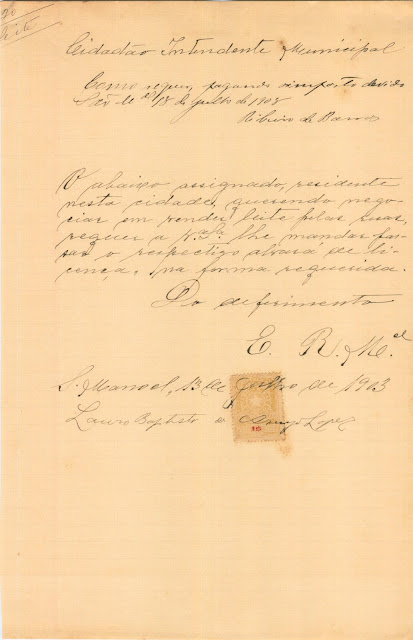 Cidadão Intendente Municipal
Como requer, pagando o imposto devido
São Mel 18 de Julho de 1908
Ribeiro de Barros
O abaixo assignado, residente
nesta cidade, querendo nego-
ciar em vender leite pelas ruas,
requer a V. Sa. lhe mandar pas-
sar o respectivo alvará de li-
cença, na forma requerida.
Do deferimento
E. R. M.cê
S. Manoel, 13 de Julho de 1903
Lauro Baptista de Lopes